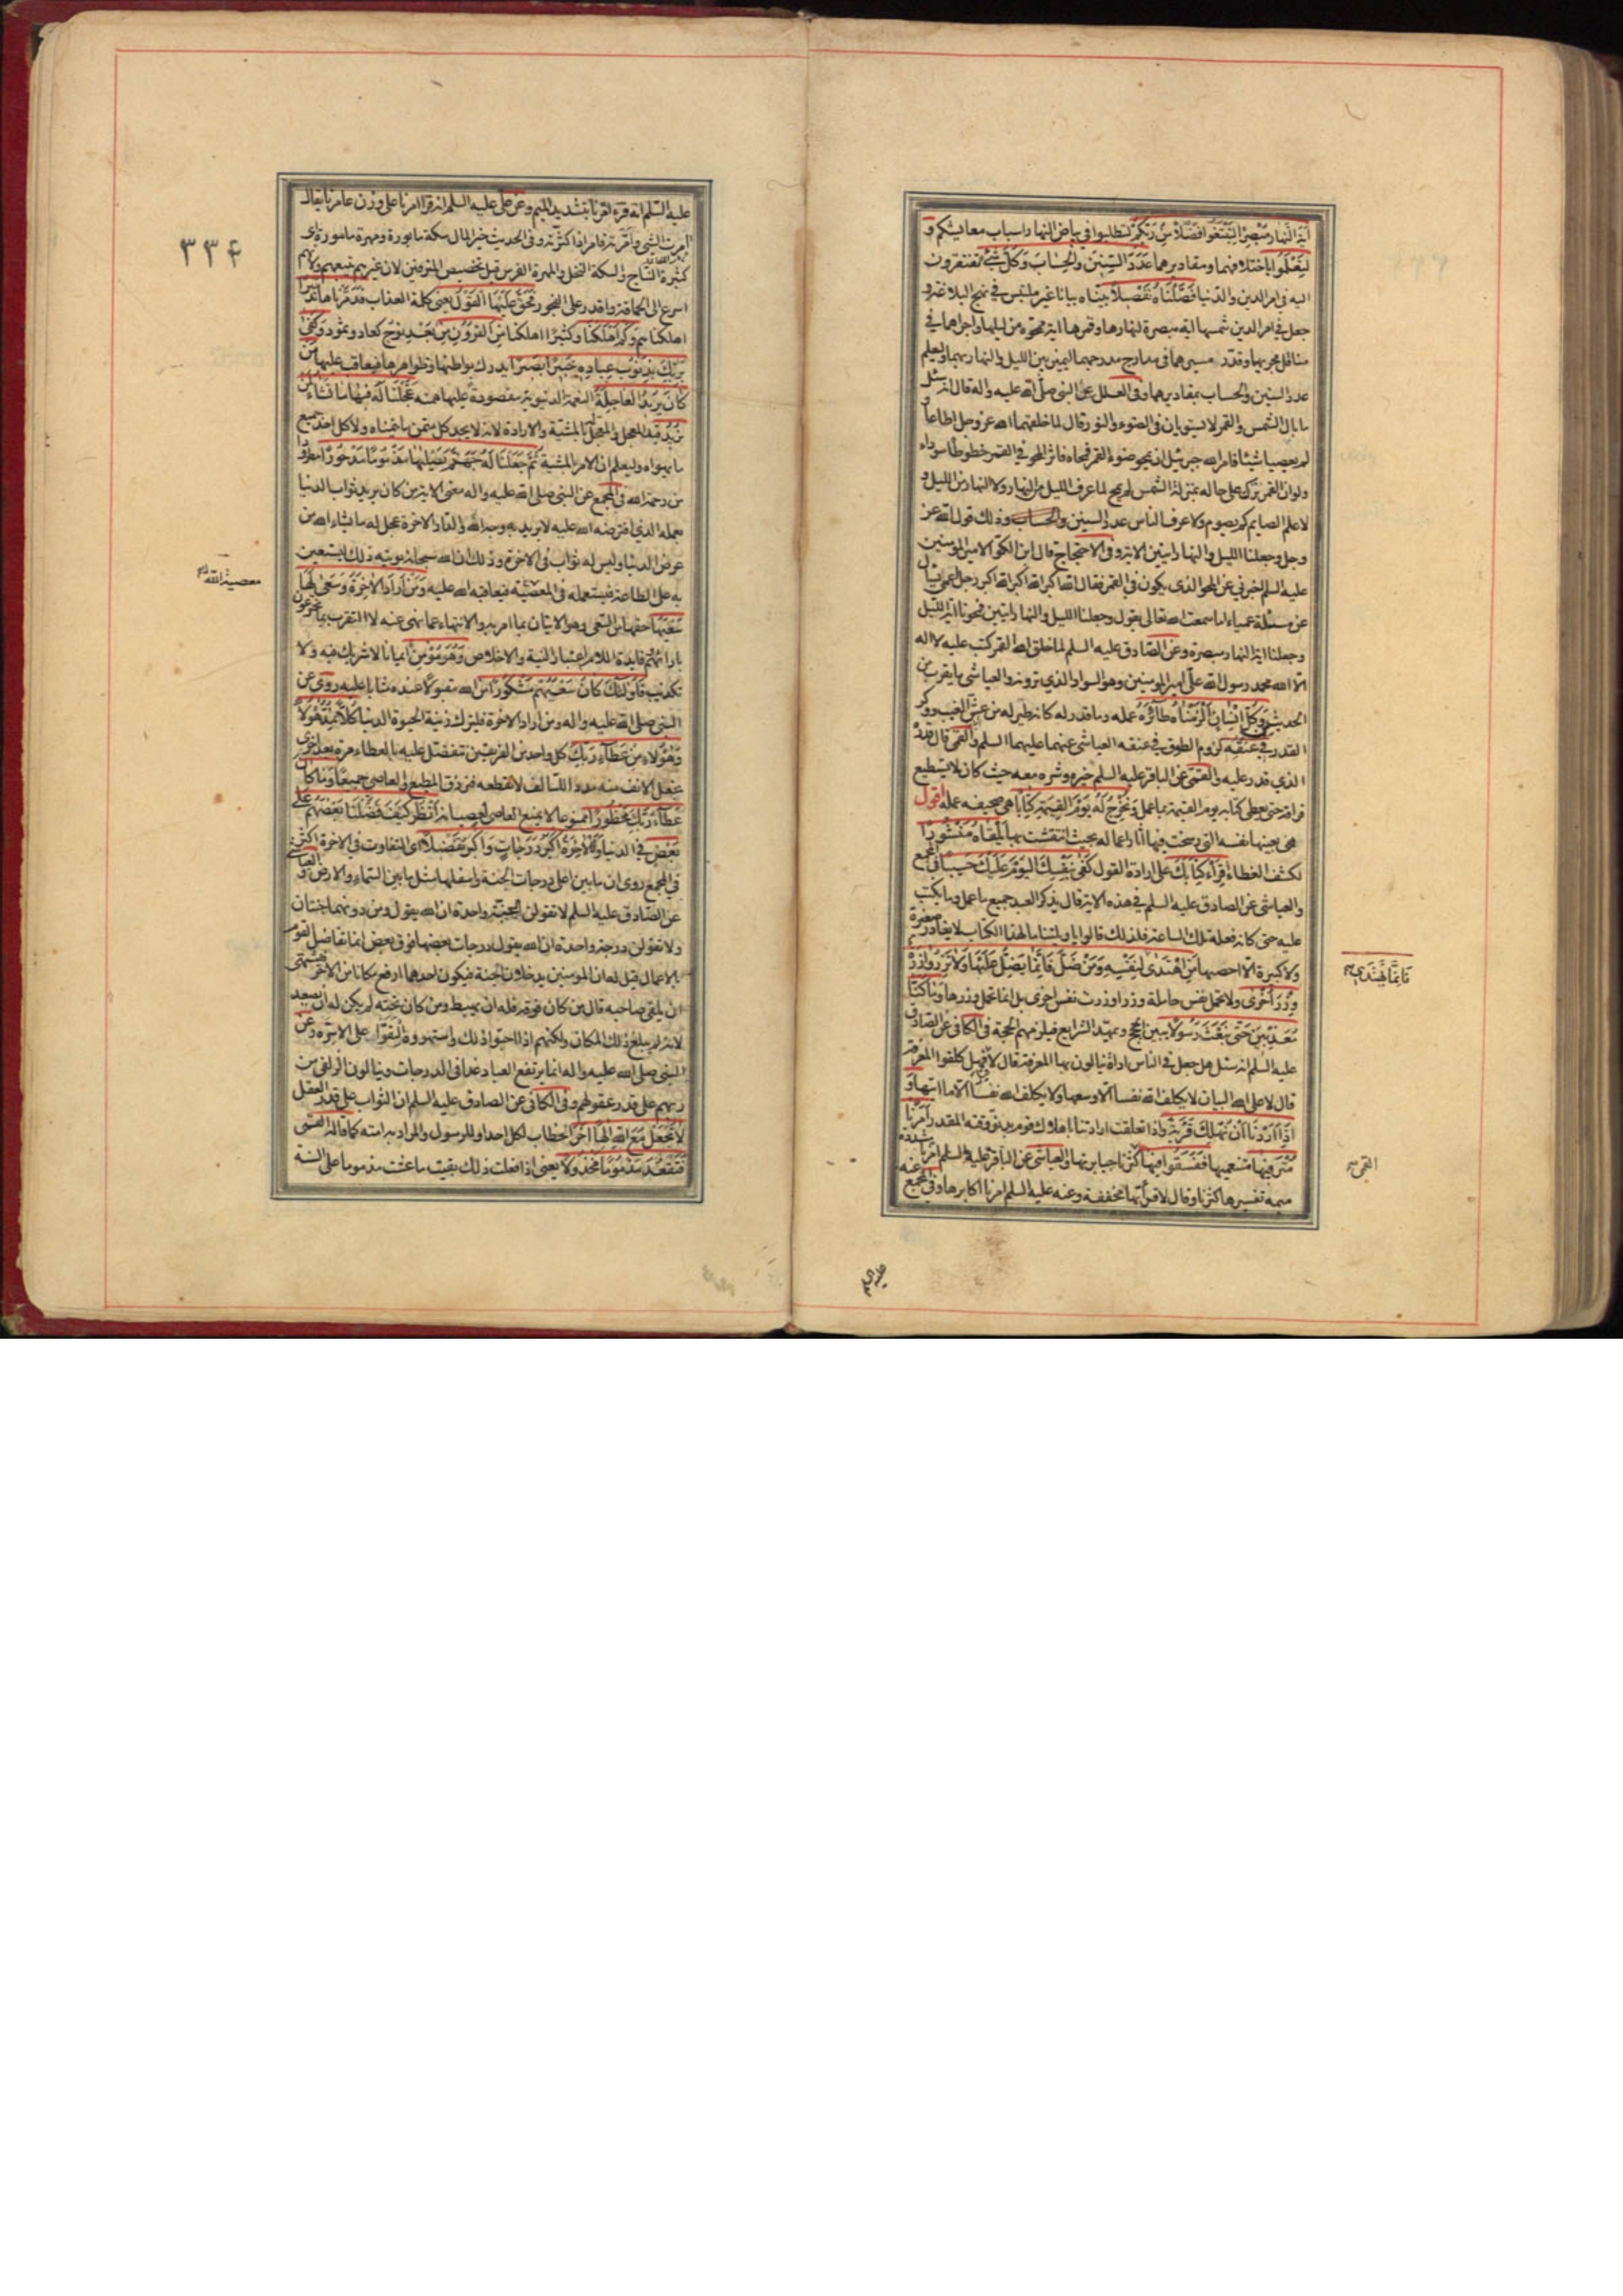 آية النهار مبصرة لتبتغوا فضلا من ربكم لتطلبوا في بياض النهار اسباب معايشكم و
لتعلموا باختلافهما ومقاديرهما عدد السنين والحساب وكل شئ تفتقرون
اليه في امر الدين والدنيا فصلناه تفصيلا بيناه بيانا غير ملتبس في نهج البلاغة و
جعل شمسها آية مبصرة لنهارها وقمرها آية ممحوة من ليلها واجراهما في
مناقل مجريهما وقدر مسيرهما في مدارج درجهما ليميز بين الليل والنهار بهما وليعلم
عدد السنين والحساب بمقاديرهما وفي العلل عن النبي صلى الله عليه واله قال انه سئل
ما بال الشمس والقمر لا يستويان في الضوء والنور قال لما خلقهما الله عز وجل اطاعا و
لم يعصيا شيئا فامر الله جبرئيل ان يمحو ضوء القمر فمحاه فاثر المحو في القمر خطوطا سوداء
ولو ان القمر ترك على حاله بمنزلة الشمس لم يمح لما عرف الليل من النهار ولا النهار من الليل و
لا علم الصايم كم يصوم ولا عرف الناس عدد السنين والحساب وذلك قول الله عز
وجل وجعلنا الليل والنهار ايتين الاية وفي الاحتجاج قال ابن الكوا لامير المؤمنين
عليه السلم اخبرني عن المحو الذي يكون في القمر فقال الله اكبر الله اكبر الله اكبر رجل اعمى يسأل
عن مسئلة عمياء اما سمعت الله تعالى يقول وجعلنا الليل والنهار ايتين فمحونا اية الليل
وجعلنا اية النهار مبصرة وعن الصادق عليه السلم لما خلق الله القمر كتب عليه لا اله
الا الله محمد رسول الله علي امير المؤمنين وهو السواد الذي ترونه والعياشي ما يقرب من
الحديثين وكل انسان الزمناه طائره عمله وما قدر له كانه طير له من عش الغيب ووكر
القدر في عنقه لزوم الطوق في عنقه العياشي عنهما عليهما السلم والقمي قال قدره
الذي قدر عليه والقمي عن الباقر عليه السلم خيره وشره معه حيث كان لا يستطيع
فراقه حتى يعطى كتابه يوم القيمة بما عمل ونخرج له يوم القيمة كتابا هي صحيفة عمله اقول
هي بعينها نفسه التي رسخت فيها اثار اعماله بحيث انتقشت بها يلقاه منشورا
لكشف الغطاء اقرأ كتابك على ارادة القول كفى بنفسك اليوم عليك حسيبا في المجمع
والعياشي عن الصادق عليه السلم في هذه الاية قال يذكر العبد جميع ما عمل وما كتب
عليه حتى كانه فعله تلك الساعة فلذلك قالوا يا ويلتنا ما لهذا الكتاب لا يغادر صغيرة
ولا كبيرة الا احصيها من اهتدى لنفسه ومن ضل فانما يضل عليها ولا تزر وازرة
وزر اخرى ولا تحمل نفس حاملة وزرا وزر نفس اخرى بل انما تحمل وزرها وما كنا
معذبين حتى نبعث رسولا يبين الحجج ويمهد الشرايع فيلزمهم الحجة في الكافي عن الصادق
عليه السلم انه سئل هل جعل في الناس اداة ينالون بها المعرفة فقال لا قيل فهل كلفوا المعرفة
قال لا على الله البيان لا يكلف الله نفسا الا وسعها ولا يكلف الله نفسا الا ما اتيها و
اذا اردنا ان نهلك قرية واذا تعلقت ارادتنا باهلاك قوم بدنو وقته المقدر امرنا
مترفيها متنعميها ففسقوا فيها كثرنا جبابرتها والعياشي عن الباقر عليه السلم امرنا مشددة
ميمه تفسيرها كثرنا وقال لا قرأتها مخففة وعنه عليه السلم امرنا اكابرها وفي المجمع عنه
فانما يهتدي
القمي
عليه السلم
٣٣٤
عليه السلم انه قرء امرنا بتشديد الميم وعن علي عليه السلم انه قرا امرنا على وزن عامرنا يقال
امرت الشئ وآمرته فامر اذا كثرته وفي الحديث خير المال سكة مابورة ومهرة مامورة اي
كثيرة النتاج والسكة النخل والمهرة الفرس قيل تخصيص المترفين لان غيرهم يتبعهم ولانهم
اسرع الى الحماقة واقدر على الفجور فحق عليها القول يعني كلمة العذاب فدمرناها تدميرا
اهلكناهم وكم اهلكنا وكثيرا اهلكنا من القرون من بعد نوح كعاد وثمود وكفى
بربك بذنوب عباده خبيرا بصيرا يدرك بواطنها وظواهرها فيعاقب عليها من
كان يريد العاجلة النعمة الدنيوية مقصورة عليها همه عجلنا له فيها ما نشاء لمن
نريد قيد المعجل والمعجل له بالمشية والارادة لانه لا يجد كل متمن ما يتمناه ولا كل احد جميع
ما يهواه وليعلم ان الامر بالمشية ثم جعلنا له جهنم يصليها مذموما مدحورا مطرودا
من رحمة الله في المجمع عن النبي صلى الله عليه واله معنى الاية من كان يريد ثواب الدنيا
بعمله الذي افترضه الله عليه لا يريد به وجه الله والدار الاخرة عجل له ما يشاء الله من
عرض الدنيا وليس له ثواب في الاخرة وذلك ان الله سبحانه يؤتيه ذلك ليستعين
به على الطاعة فيستعمله في المعصية فيعاقبه الله عليه ومن اراد الاخرة وسعى لها
سعيها حقها من السعي وهو الاتيان بما امر به والانتهاء عما نهى عنه لا التقرب بما يخترعون
بارائهم فايدة اللام اعتبار النية والاخلاص وهو مؤمن ايمانا لا شرك فيه ولا
تكذيب فاولئك كان سعيهم مشكورا من الله مقبولا عنده مثابا عليه روي عن
النبي صلى الله عليه واله ومن اراد الاخرة فليترك زينة الحيوة الدنيا كلا نمد هؤلاء
وهؤلاء من عطاء ربك كل واحد من الفريقين نتفضل عليه بالعطاء مرة بعد اخرى
نجعل الانف منه مددا للسالف لا نقطعه فنرزق المطيع والعاصي جميعا وما كان
عطاء ربك محظورا ممنوعا لا يمنع العاصي لعصيانه انظر كيف فضلنا بعضهم على
بعض في الدنيا وللاخرة اكبر درجات واكبر تفضيلا اي التفاوت في الاخرة اكثر
في المجمع روي ان ما بين اعلى درجات الجنة واسفلها مثل ما بين السماء والارض والعياشي
عن الصادق عليه السلم لا تقولن الجنة واحدة ان الله يقول ومن دونهما جنتان
ولا تقولن درجة واحدة ان الله يقول درجات بعضها فوق بعض انما تفاضل القوم
بالاعمال قيل له ان المؤمنين يدخلان الجنة فيكون احدهما ارفع مكانا من الاخر فيشتهي
ان يلقى صاحبه قال من كان فوقه فله ان يهبط ومن كان تحته لم يكن له ان يصعد
لانه لم يبلغ ذلك المكان ولكنهم اذا احبوا ذلك واشتهوه التقوا على الاسرة وعن
النبي صلى الله عليه واله انما يرتفع العباد غدا في الدرجات وينالون الزلفى من
ربهم على قدر عقولهم وفي الكافي عن الصادق عليه السلم ان الثواب على قدر العقل
لا تجعل مع الله الها اخر الخطاب لكل احد او للرسول والمراد به امته كما قاله القمي
فتقعد مذموما مخذولا يعني اذا فعلت ذلك بقيت ما عشت مذموما على السنة
معصية الله